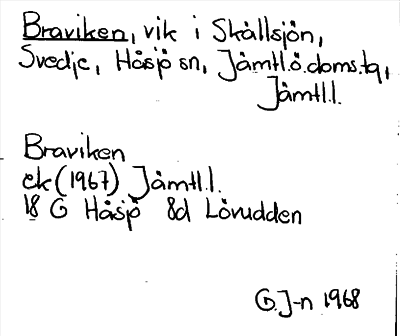 Braviken, vik i Skållsjön,
Svedje, Håsjö sn, Jämtl.ö.doms.tg,
Jämtl.l.
Braviken
ek (1967) Jämtl.l.
18 G Håsjö 8d Lövudden
G.J-n 1968